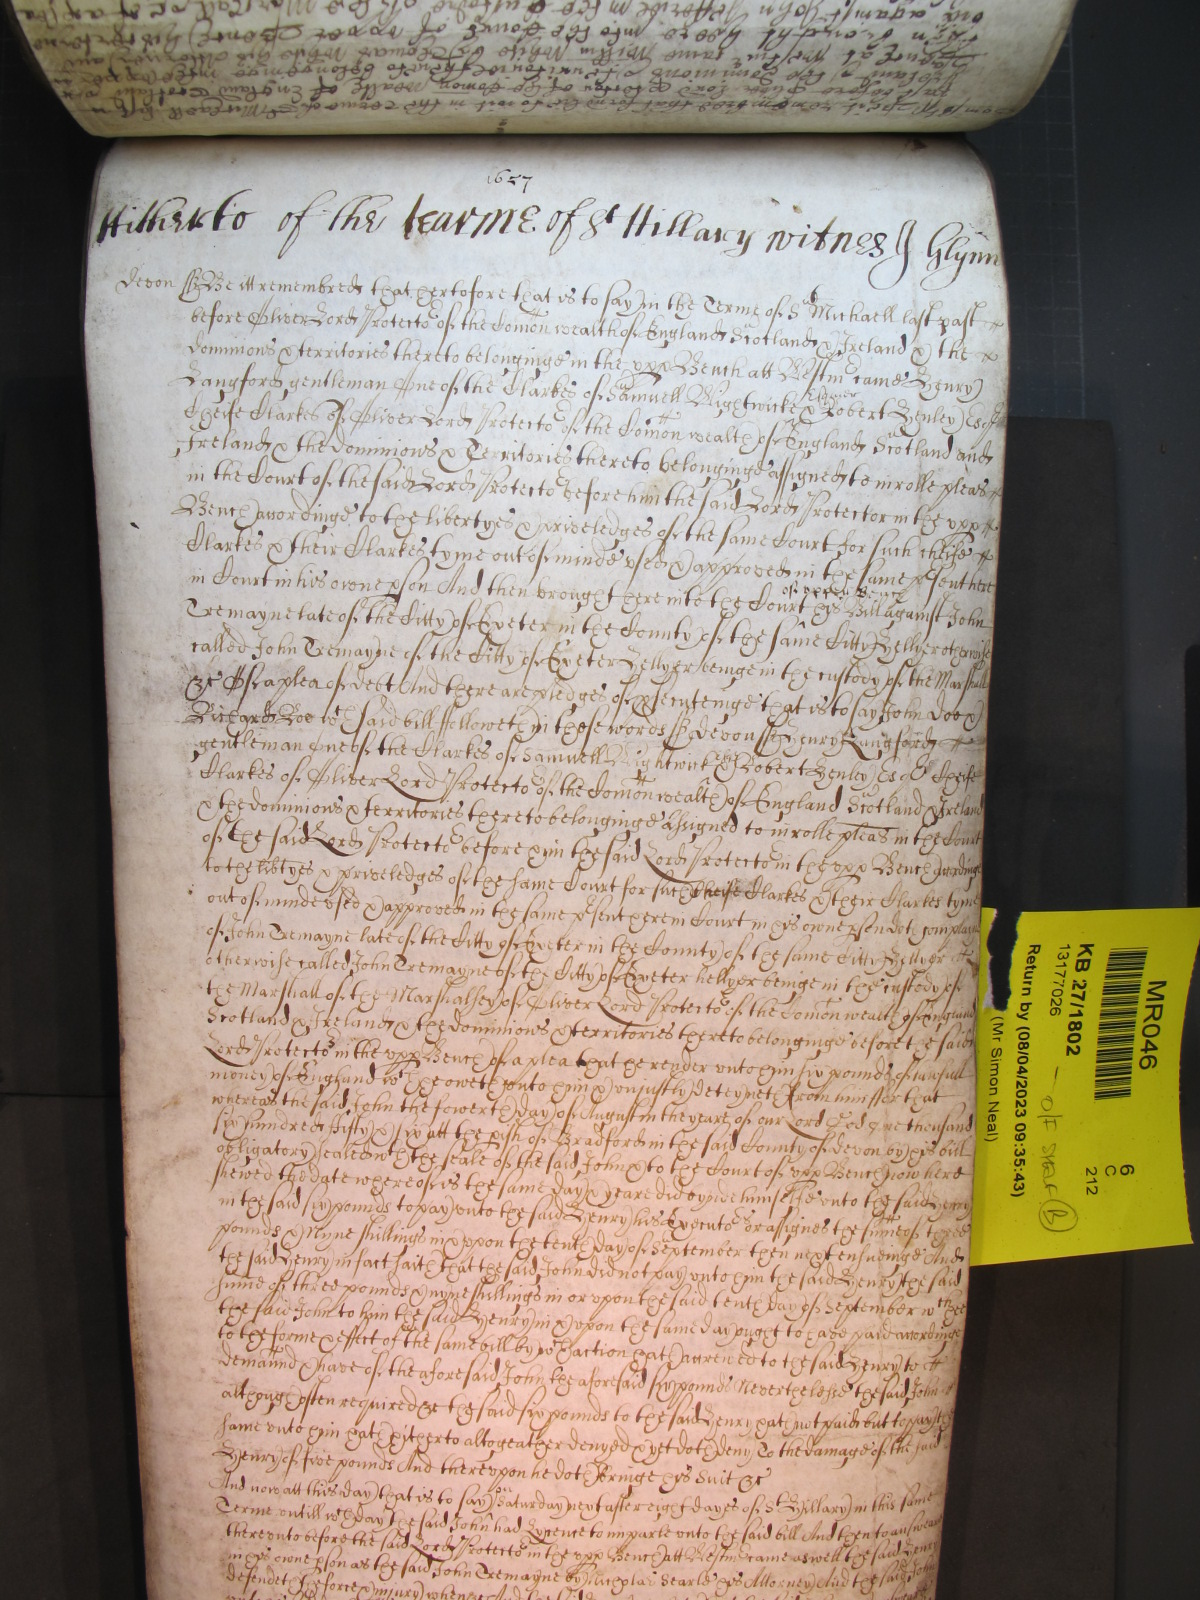 1657
Hitherto of the tearme of St Hillary witnes J Glynn
Devon ss Be it remembred that hertofore that is to say in the Terme of St Michaell last past
before Oliver Lord Protector of the Comon wealth of England Scotland & Ireland & the
dominions & territories thereto belonginge in the upp Bench att Westm came Henry
Langford gentleman One of the Clarkes of Samuell Wightwicke Esquier & Robert Henley Esqr
Cheife Clarkes of Oliver Lord Protector of the Comon wealth of England Scotland and
Ireland & the dominions & Territories thereto belonginge assigned to inrolle pleas
in the Court of the said Lord Protector before him the said Lord Protector in the upp
Bench accordinge to the libertyes & priveledges of the same Court for such cheife
Clarkes & their Clarkes tyme out of minde used & approved in the same psent here
in Court in his owne pson And then brought here into the Court of upper Bench his Bill against John
Tremayne late of the Citty of Exeter in the County of the same Citty Hellyer otherwise
called John Tremayne of the Citty of Exeter Hellyer beinge in the custody of the Marshall
&c Of a plea of debt And there are pledges of psecuteinge that is to say John Doo &
Richard Roe wch said bill followeth in these words ss devon ss Henry Langford
gentleman one of the Clarkes of Samuell Wightwick & Robert Henley Esqr Cheife
Clarkes of Oliver Lord Protector of the Comon wealth of England Scotland & Ireland
& the dominions & territories thereto belonginge Assigned to inrolle pleas in the Court
of the said Lord Protector before him the said Lord Protector in the upp Bench accordinge
to the libtyes & priveledges of the same Court for such cheife Clarkes & their Clarkes tyme
out of minde used & approved in the same psent here in Court in his owne pson doth complayne
of John Tremayne late of the Citty of Exeter in the County of the same Citty Hellyer
otherwise called John Tremayne of the Citty of Exeter hellyer beinge in the custody of
the Marshall of the Marshalsey of Oliver Lord Protector of the Comon wealth of England
Scotland & Ireland & the dominions & territories thereto belonginge before the said
Lord Protector in the upp Bench of a plea that he render unto him six pounds of lawfull
money of England wch he oweth unto him & unjustly deteyneth from him for that
whereas the said John the fowerth day of August in the yeare of our Lord God one thousand
six hundred fifty & six att the pish of Bradford in the said County of devon by his bill
obligatory sealed with the seale of the said John & to the Court of upp Bench now here
shewed the date whereof is the same day & yeare did bynde himselfe unto the said Henry
in the said six pounds to pay unto the said Henry his Executors or assignes the sume of three
pounds & nyne shillings in & uppon the tenth day of September then next ensueinge And
the said Henry in fact saith that the said John did not pay unto him the said Henry the said
sume of three pounds & nyne shillings in or upon the said tenth day of September wch
the said John to him the said Henry in & upon the same day ought to have paid accordinge
to the forme & effect of the same bill by wch action hath accrewed to the said Henry to
demaund & have of the aforesaid John the aforesaid six pounds Neverthelesse the said John
although often required &c the said six pounds to the said Henry hath not paid but to pay the
same unto him hath hitherto altogeather denyed & yet doth deny To the damage of the said
Henry of five pounds And thereupon he doth bringe his Suit &c
And now att this day that is to say on Saturday next after eight dayes of St Hillary in this same
Terme untill wch day the said John had Lycence to imparle unto the said bill And then to answeare
thereunto before the said Lord Protector in the upp Bench att Westm came aswell the said Henry
in his owne pson as the said John Tremayne by Nicholas Searle his Attorney And the said John
defendeth the force & injury when &c And
MR046
6
C
212
KB 27/1802
13177026
O/F SHELF B
Return by (08/04/2023 09:35:43)
(Mr Simon Neal)